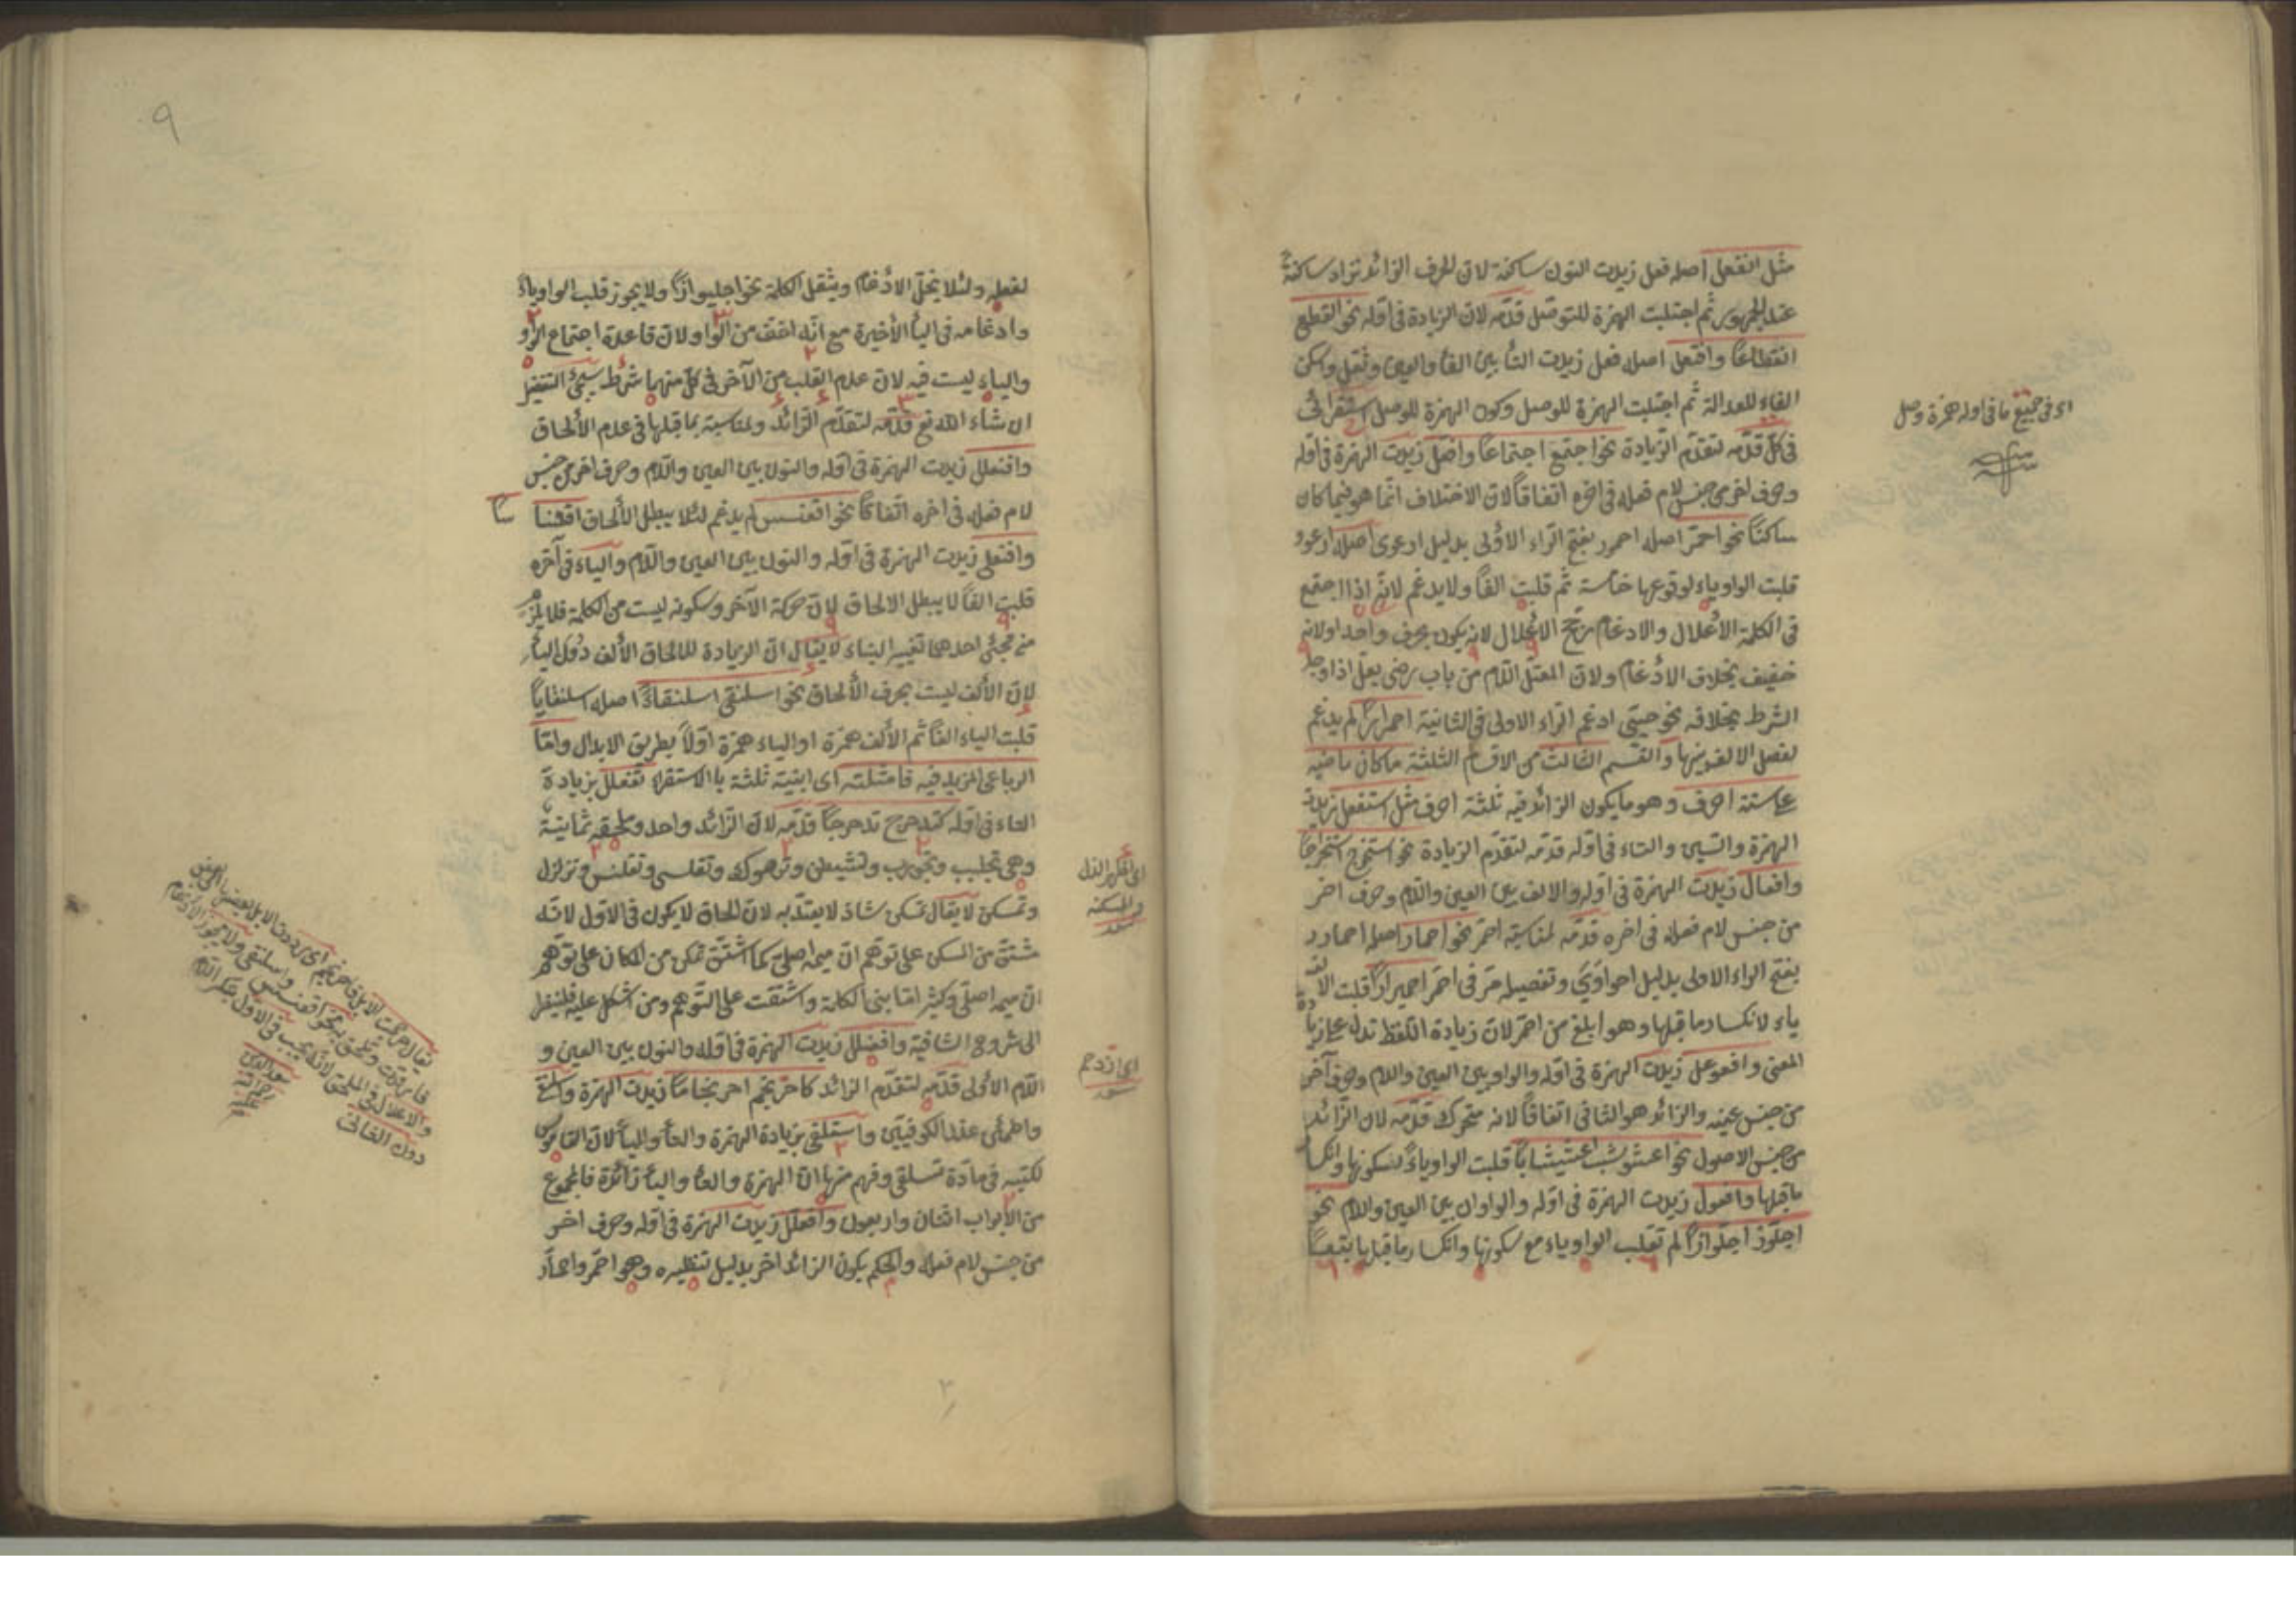 مثل انفعل اصله فعل زيدت النون ساكنة لان الحرف الزائد تزاد ساكنة
عند الجمهور ثم اجتلبت الهمزة للتوصل قدّمه لان الزيادة في اوله نحو انقطع
انقطاعًا وافتعل اصله فعل زيدت التاء بين الفاء والعين ونقل وسكن
الفاء للعدالة ثم اجتلبت الهمزة للوصل وكون الهمزة للوصل استقرائى
في كلّ قدّمه لتقدّم الزيادة نحو اجتمع اجتماعًا وافعلّ زيدت الهمزة في اوله
وحرف اخر من جنس لام فعله في اخره اتفاقًا لان الاختلاف انّما هو فيما كان
ساكنًا نحو احمرّ اصله احمرر بفتح الراء الاولى بدليل ارعوى اصله ارعوو
قلبت الواو ياء لوقوعها خامسة ثم قلبت الفًا ولا يدغم لانّه اذا اجتمع
في الكلمة الاعلال والادغام رجّح الاعلال لانه يكون بحرف واحد ولانه
خفيف بخلاف الادغام ولان المعتلّ اللام من باب رضى يعلّ اذا وجد
الشرط بخلافه نحو حيى ادغم الراء الاولى في الثانية احمرارًا لم يدغم
لفصل الالف بينها والقسم الثالث من الاقسام الثلثة ما كان ماضيه
على ستة احرف وهو ما يكون الزائد فيه ثلثة احرف مثل استفعل زيدت
الهمزة والسين والتاء في اوله قدّمه لتقدّم الزيادة نحو استخرج استخراجًا
وافعالّ زيدت الهمزة في اوله والالف بين العين واللام وحرف اخر
من جنس لام فعله في اخره قدّمه لمناسبة احمرّ نحو احمارّ اصله احمارر
بفتح الراء الاولى بدليل احواوى وتفصيله مرّ في احمرّ احميرارًا قلبت الالف
ياء لانكسار ما قبلها وهو ابلغ من احمرّ لان زيادة اللفظ تدل على زيادة
المعنى وافعوعل زيدت الهمزة في اوله والواو بين العين واللام وحرف آخر
من جنس عينه والزائد هو الثاني اتفاقًا لانه متحرك قدّمه لان الزائد
من جنس الاصول نحو اعشوشب اعشيشابًا قلبت الواو ياءً لسكونها وانكسار
ما قبلها وافعوّل زيدت الهمزة في اوله والواوان بين العين واللام نحو
اجلوّذ اجلوّاذًا لم تقلب الواو ياء مع سكونها وانكسار ما قبلها
اى في جميع ما في اوله همزة وصل
لفعله ولئلا يخلّ الادغام ويثقل الكلمة نحو اجليواذًا ولا يجوز قلب الواو ياءً
وادغامه في الياء الأخيرة مع انّه اخفّ من الواو لان قاعدة اجتماع الواو
والياء ليست فيه لان عدم القلب من الآخر في كلّ منهما شرط سيجئ التفصيل
ان شاء الله تع قدّمه لتقدّم الزائد ولمناسبة بما قبلها في عدم الألحاق
وافعنلل زيدت الهمزة في اوله والنون بين العين واللام وحرف اخر من جنس
لام فعله في اخره اتفاقًا نحو اقعنسس لم يدغم لئلا يبطل الألحاق اقعنساسًا
وافعنلى زيدت الهمزة في اوله والنون بين العين واللام والياء في آخره
قلبت الفًا لا يبطل الالحاق لانّ حركة الآخر وسكونه ليست من الكلمة فلا يلزم
من مجئ احدهما تغيير البناء لا يقال انّ الزيادة للالحاق الألف دون الياء
لان الألف ليست بحرف الألحاق نحو اسلنقى اسلنقاءً اصله اسلنقايًا
قلبت الياء الفًا ثم الألف همزة او الياء همزة اوّلاً بطريق الابدال وامّا
الرباعى المزيد فيه فامثلته اى ابنيته ثلثة بالاستقراء تفعلل بزيادة
التاء في اوله كتدحرج تدحرجًا قدّمه لان الزائد واحد وملحقه ثمانية
وهى تجلبب وتجورب وتشيطن وترهوك وتقلسى وتقلنس وتزلزل
وتمسكن لا يقال تمسكن شاذ لا يعتدّ به لان الحاق لا يكون في الاول لانه
مشتقّ من السكن على توهّم ان ميمه اصلىّ كما اشتقّ تمكن من المكان على توهّم
ان ميمه اصلىّ وكثير امّا بنى الكلمة واشتقت على التوهم ومن اشكل عليه فلينظر
الى شروح الشافية وافعنلل زيدت الهمزة في اوله والنون بين العين و
اللام الأولى قدّمه لتقدّم الزائد كاحرنجم احرنجامًا زيدت الهمزة
واطمئن عند الكوفيين واستلقى بزيادة الهمزة والتاء والياء لان القاموس
كتبه في مادّة تسلقى وفهم منها انّ الهمزة والتاء والياء زائدة فالمجموع
من الأبواب اثنان واربعون وافعللّ زيدت الهمزة في اوله وحرف اخر
من جنس لام فعله والحكم بكون الزائد اخر بدليل تنظيره وهو احمرّ واحمارّ
اى ازدحم
والاعلال في الملحق لانّه يجب في الاول
دون الثانى
٩